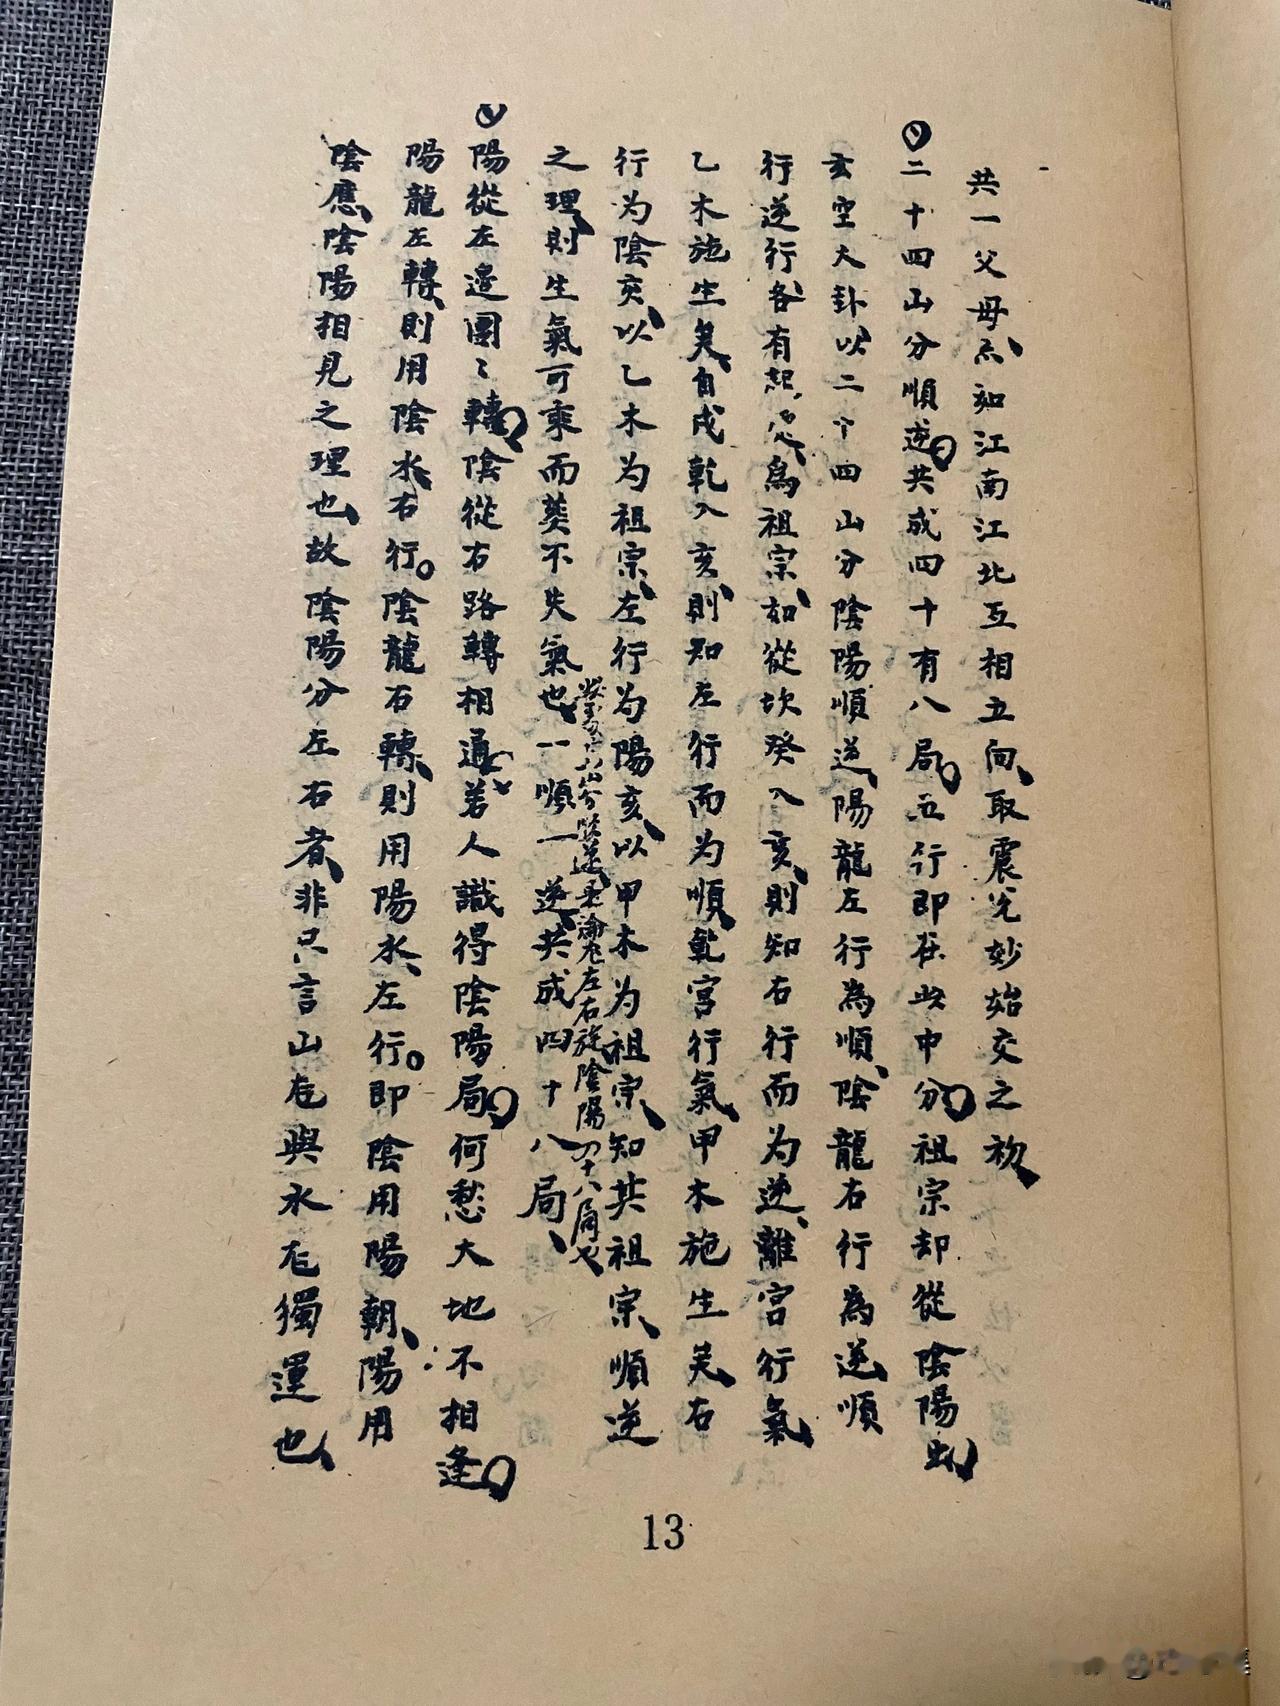 共一父母亦如江南江北互相立向取震兌妙始交之初
二十四山分順逆共成四十有八局五行即在此中分祖宗却從陰陽出
玄空大卦以二十四山分陰陽順逆陽龍左行為順陰龍右行為逆順
行逆行各有起處爲祖宗如從坎癸入亥則知右行而为逆離宮行氣
乙木施生矣自戍乾入亥則知左行而为順乾宮行氣甲木施生矣右
行为陰亥以乙木为祖宗左行为陽亥以甲木为祖宗知其祖宗順逆
山分左右旋陰陽四十八局也
之理則生氣可乘而葬不失氣也一順一逆共成四十八局
陽從左邊團〻轉陰從右路轉相通若人識得陰陽局何愁大地不相逢
陽龍左轉則用陰水右行陰龍右轉則用陽水左行即陰用陽朝陽用
陰應陰陽相見之理也故陰陽分左右者非只言山左與水左獨運也
13